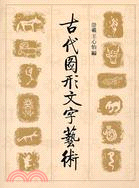 王心怡 編
古代圖形文字藝術